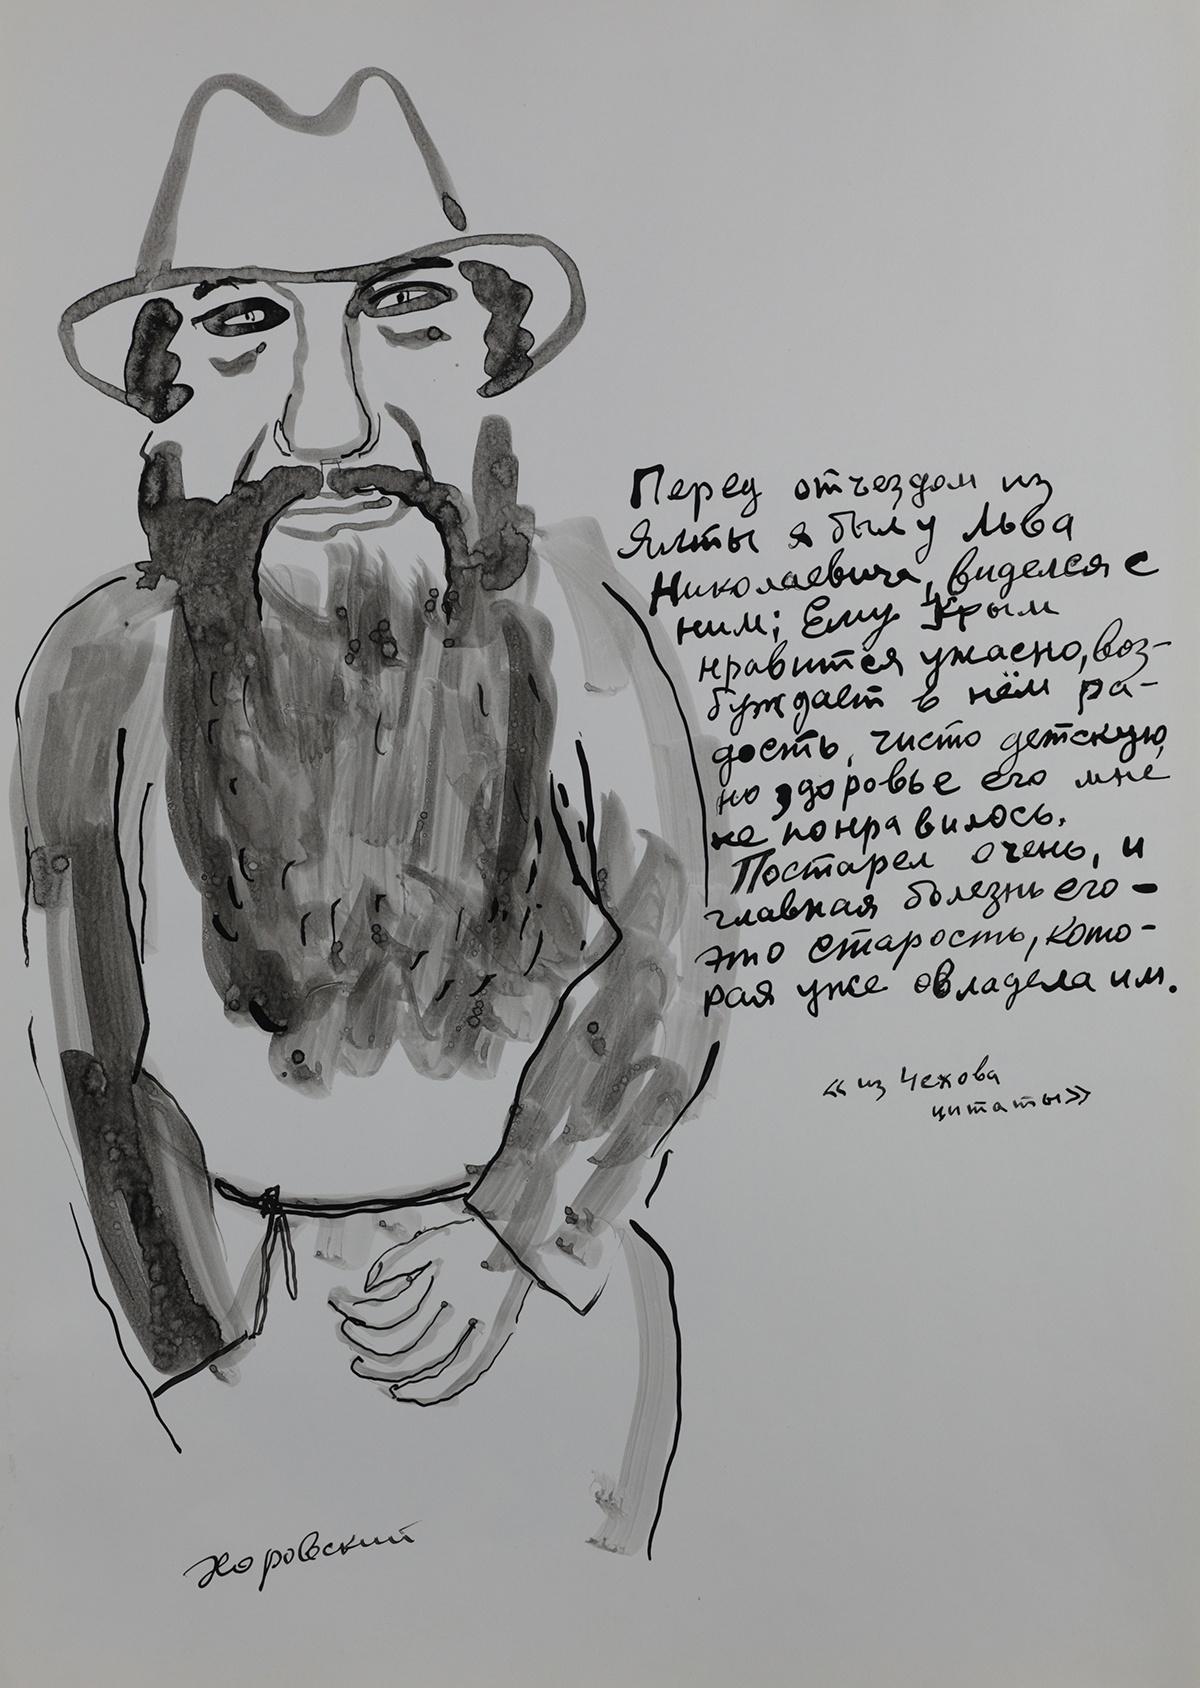 Перед отъездом из
Ялты я был у Льва
Николаевича, виделся с
ним; Ему Крым
нравится ужасно, воз-
буждает в нём ра-
дость, чисто детскую,
но здоровье его мне
не понравилось.
Постарел очень, и
главная болезнь его -
это старость, кото-
рая уже овладела им.
«из Чехова
цитаты»
Хоровский